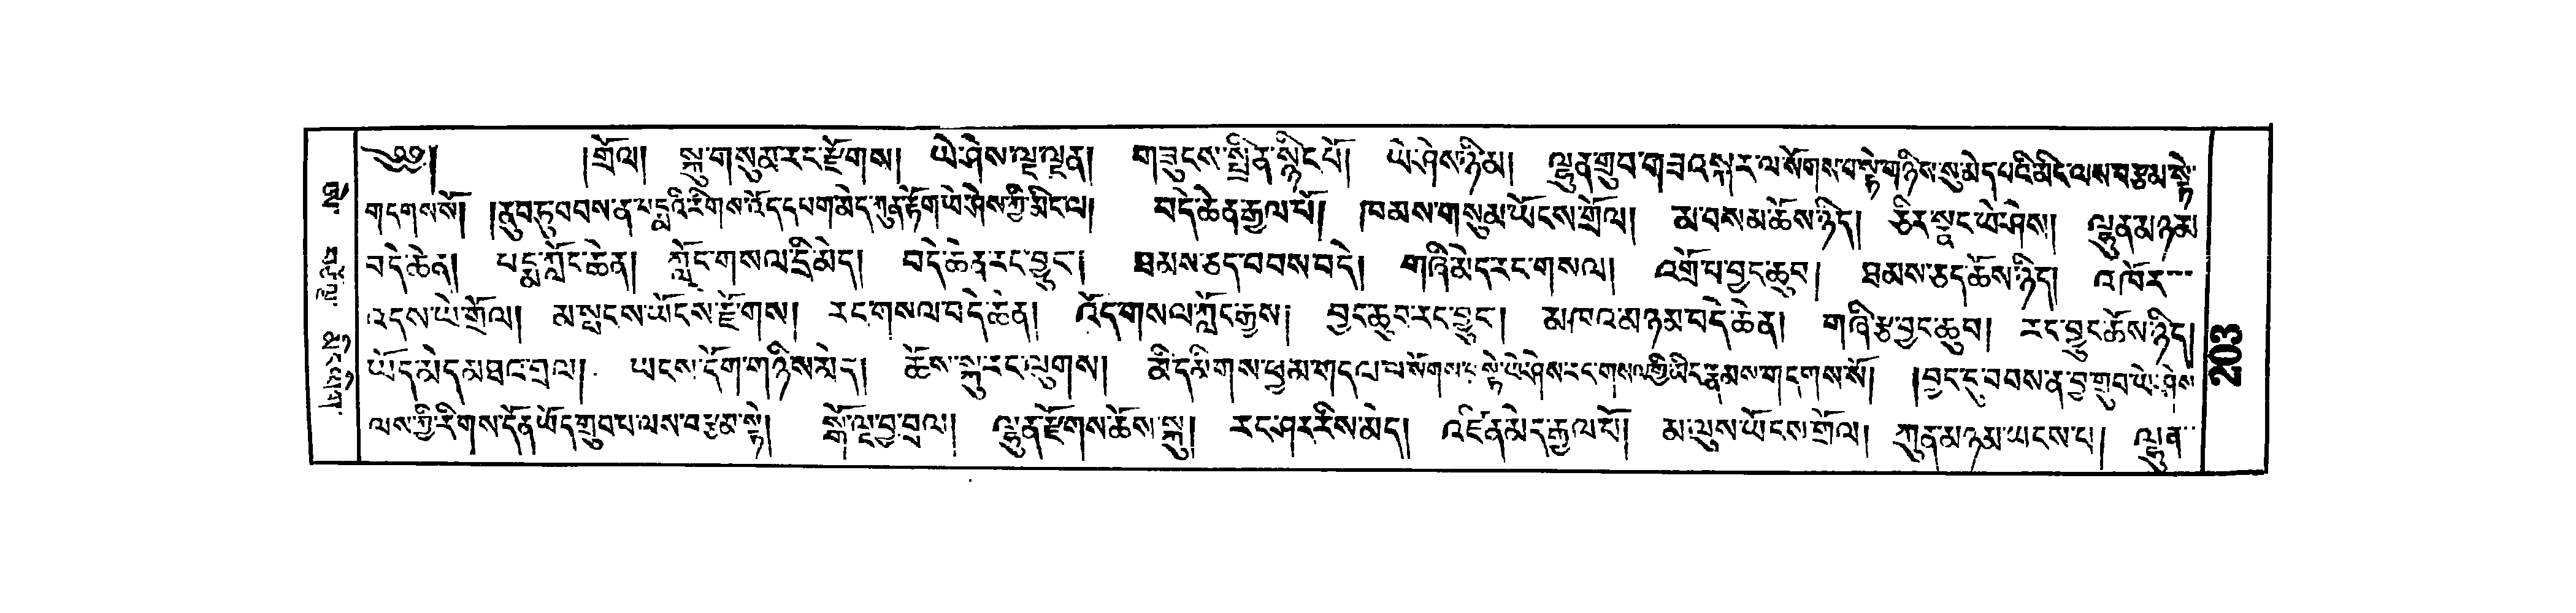 ༄༅། །གྲོལ། སྐུ་གསུམ་རང་རྫོགས། ཡེ་ཤེས་ལྔ་ལྡན། གཟུངས་སྤྲིན་སྙིང་པོ། ཡེ་ཤེས་ཉི་མ། ལྷུན་གྲུབ་གཟའ་སྐར་ལ་སོགས་པ་སྟེ་གཉིས་སུ་མེད་པའི་མིང་ལས་བརྩམ་སྟེ་
གདགས་སོ། །ནུབ་ཏུ་བབས་ན་པདྨའི་རིགས་འོད་དཔག་མེད་ཀུན་རྟོག་ཡེ་ཤེས་ཀྱི་མིང་ལ། བདེ་ཆེན་རྒྱལ་པོ། ཁམས་གསུམ་ཡོངས་གྲོལ། མ་བཅས་མ་ཆོས་ཉིད། ཅིར་སྣང་ཡེ་ཤེས། ལྷུན་མཉམ་
བདེ་ཆེན། པདྨ་ཀློང་ཆེན། ཀློང་གསལ་དྲི་མེད། བདེ་ཆེན་རང་བྱུང་། ཐམས་ཅད་བབས་བདེ། གཞི་མེད་རང་གསལ། འགྲོ་བ་བྱང་ཆུབ། ཐམས་ཅད་ཆོས་ཉིད། འཁོར་
འདས་ཡེ་གྲོལ། མ་སྤངས་ཡོངས་རྫོགས། རང་གསལ་བདེ་ཆེན། འོད་གསལ་ཀློང་རྒྱས། བྱང་ཆུབ་རང་བྱུང་། མཁའ་མཉམ་བདེ་ཆེན། གཞི་རྩ་བྱང་ཆུབ། རང་བྱུང་ཆོས་ཉིད།
ཡོད་མེད་མཐའ་བྲལ། ཡངས་དོག་གཉིས་མེད། ཆོས་སྐུ་རང་ལུགས། མི་དམིགས་ཕྱམ་གདལ་ལ་སོགས་པ་སྟེ་ཡེ་ཤེས་རང་གསལ་གྱི་མིང་རྣམས་གདགས་སོ། །བྱང་དུ་བབས་ན་བྱ་གྲུབ་ཡེ་ཤེས་
ལས་ཀྱི་རིགས་དོན་ཡོད་གྲུབ་པ་ལས་བརྩམ་སྟེ། བྱ་བྲལ། ལྷུན་རྫོགས་ཆོས་སྐུ། རང་ཤར་རིས་མེད། འཛིན་མེད་རྒྱལ་པོ། མ་ལུས་ཡོངས་གྲོལ། ཀུན་མཉམ་ཡངས་པ། ལྷུན་